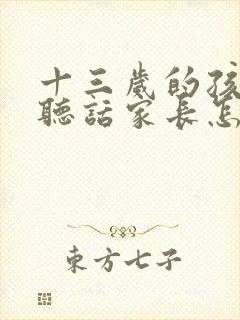 十三歲的孩
聽話家長怎
東方七子